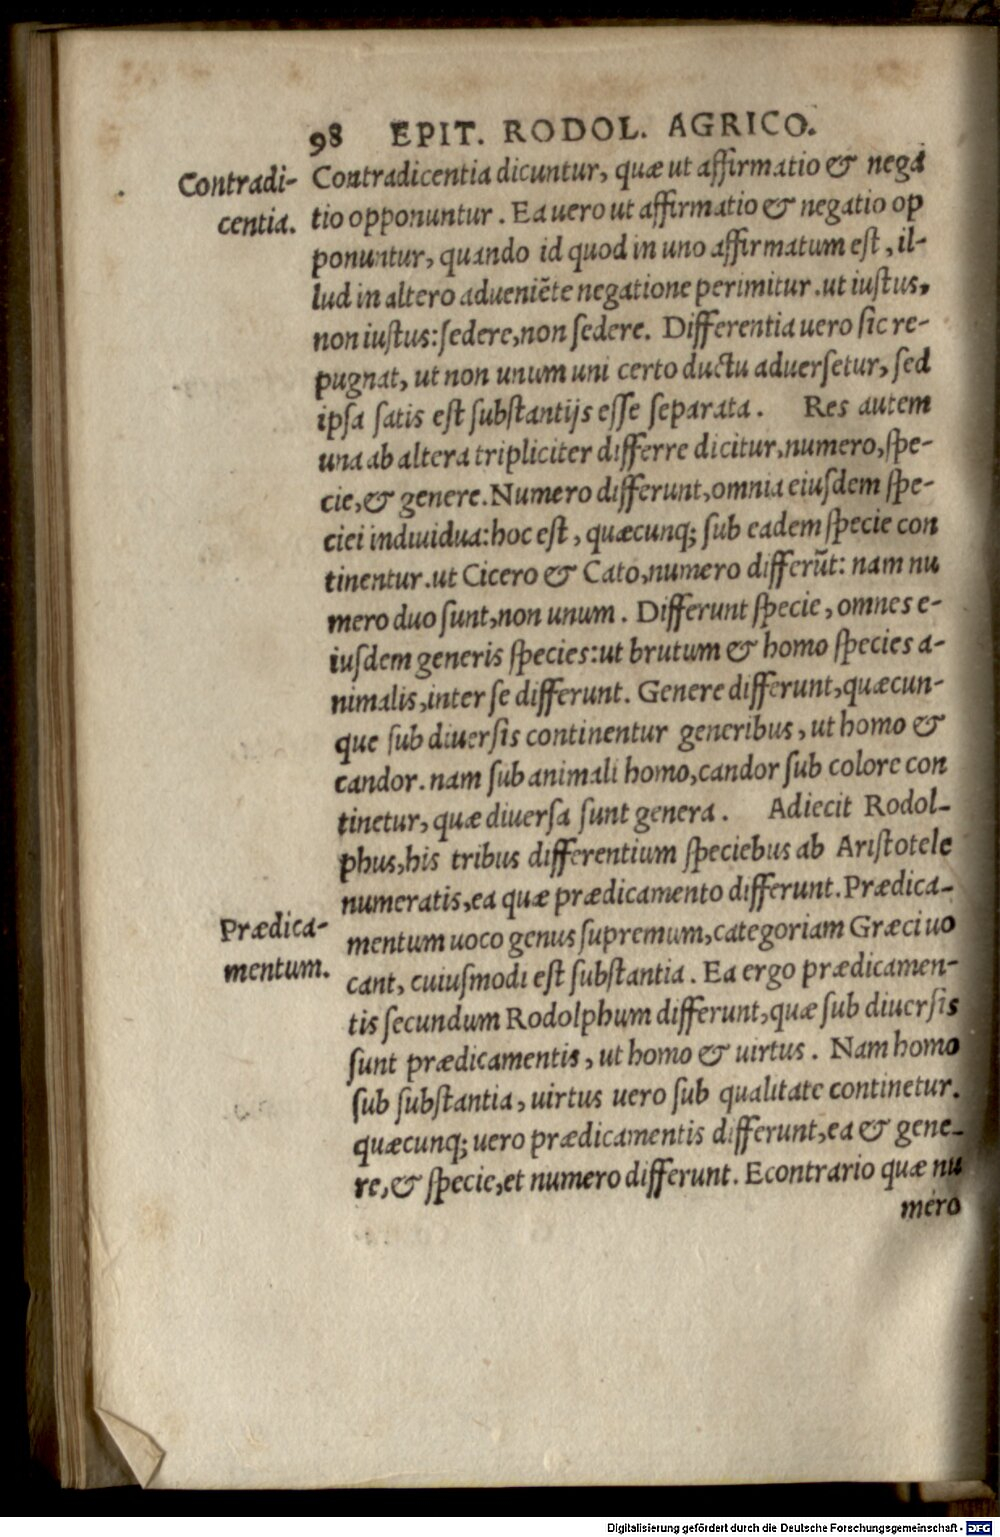 98 EPIT. RODOL. AGRICO.
Contradi-
centia.
Contradicentia dicuntur, quæ ut affirmatio & nega
tio opponuntur. Ea uero ut affirmatio & negatio op
ponuntur, quando id quod in uno affirmatum est, il-
lud in altero adueniẽte negatione perimitur. ut iustus,
non iustus: sedere, non sedere. Differentia uero sic re-
pugnat, ut non unum uni certo ductu aduersetur, sed
ipsa satis est substantijs esse separata. Res autem
una ab altera tripliciter differre dicitur, numero, spe-
cie, & genere. Numero differunt, omnia eiusdem spe-
ciei indiuidua: hoc est, quæcunq; sub eadem specie con
tinentur. ut Cicero & Cato, numero differũt: nam nu
mero duo sunt, non unum. Differunt specie, omnes e-
iusdem generis species: ut brutum & homo species a-
nimalis, inter se differunt. Genere differunt, quæcun-
que sub diuersis continentur generibus, ut homo &
candor. nam sub animali homo, candor sub colore con
tinetur, quæ diuersa sunt genera. Adiecit Rodol-
phus, his tribus differentium speciebus ab Aristotele
numeratis, ea quæ prædicamento differunt. Prædica-
Prædica-
mentum.
mentum uoco genus supremum, categoriam Græci uo
cant, cuiusmodi est substantia. Ea ergo prædicamen-
tis secundum Rodolphum differunt, quæ sub diuersis
sunt prædicamentis, ut homo & uirtus. Nam homo
sub substantia, uirtus uero sub qualitate continetur.
quæcunq; uero prædicamentis differunt, ea & gene-
re, & specie, et numero differunt. Econtrario quæ nu
mero
Digitalisierung gefördert durch die Deutsche Forschungsgemeinschaft - DFG